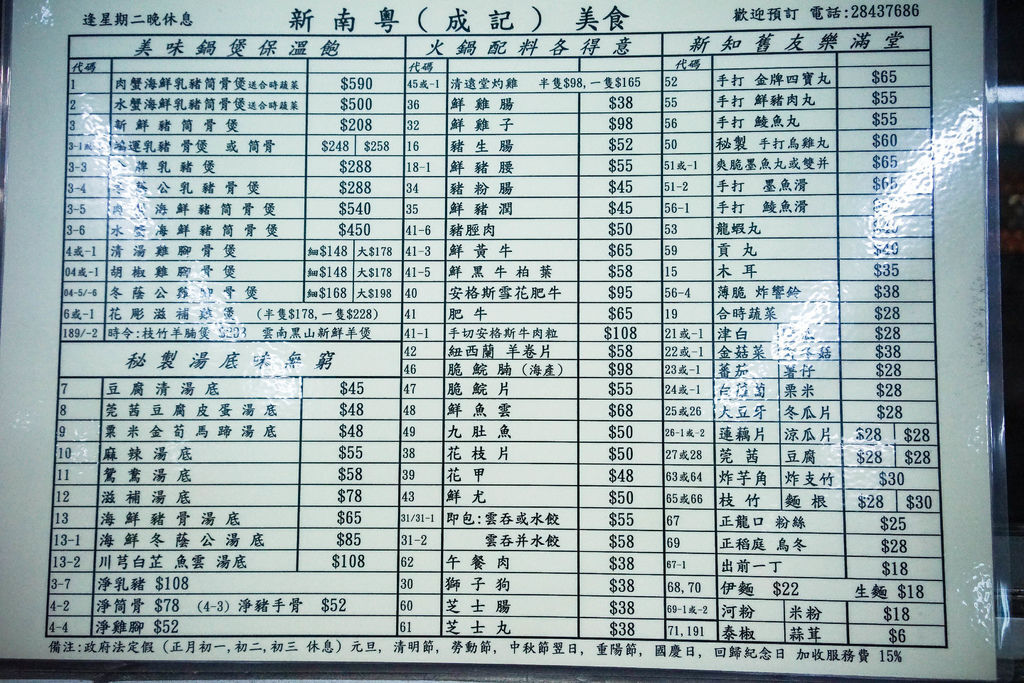 逢星期二晚休息 新南粵(成記)美食 歡迎預訂 電話:28437686
美味鍋煲保溫飽
代碼
1 肉蟹海鮮乳豬筒骨煲送合時蔬菜 $590
2 水蟹海鮮乳豬筒骨煲送合時蔬菜 $500
3 新鮮豬筒骨煲 $208
3-1或 運乳豬骨煲 或 筒骨 $248 $258
3-3 牌乳豬煲 $288
3-4 冬蔭公乳豬骨煲 $288
3-5 肉蟹海鮮豬筒骨煲 $540
3-6 水蟹海鮮豬筒骨煲 $450
4或-1 清湯雞腳骨煲 細$148 大$178
04或-1 胡椒雞腳骨煲 細$148 大$178
04-5/-6 冬蔭公雞腳骨煲 細$168 大$198
6或-1 花彫滋補雞煲 (半隻$178,一隻$228)
189/-2 時令:枝竹羊腩煲 雲南黑山新鮮羊煲
秘製湯底味無窮
7 豆腐清湯底 $45
8 莞茜豆腐皮蛋湯底 $48
9 粟米金荀馬蹄湯底 $48
10 麻辣湯底 $55
11 鴛鴦湯底 $58
12 滋補湯底 $78
13 海鮮豬骨湯底 $65
13-1 海鮮冬蔭公湯底 $85
13-2 川芎白芷 魚雲湯底 $108
3-7 淨乳豬 $108
4-2 淨筒骨 $78 (4-3) 淨豬手骨 $52
4-4 淨雞腳 $52
火鍋配料各得意
45或-1 清遠堂灼雞 半隻$98,一隻$165
36 鮮雞腸 $38
32 鮮雞子 $98
16 豬生腸 $52
18-1 鮮豬腰 $55
34 豬粉腸 $45
35 鮮豬潤 $45
41-6 豬脛肉 $50
41-3 鮮黃牛 $65
41-5 鮮黑牛柏葉 $58
40 安格斯雪花肥牛 $95
41 肥牛 $65
41-1 手切安格斯牛肉粒 $108
42 紐西蘭 羊卷片 $58
46 脆鯇腩(海產) $98
47 脆鯇片 $55
48 鮮魚雲 $68
49 九肚魚 $50
38 花枝片 $50
39 花甲 $48
43 鮮尤 $50
31/31-1 即包:雲吞或水餃 $55
31-2 雲吞并水餃 $58
62 午餐肉 $38
30 獅子狗 $38
60 芝士腸 $38
61 芝士丸 $38
新知舊友樂滿堂
代碼
52 手打 金牌四寶丸 $65
55 手打 鮮豬肉丸 $55
56 手打 鯪魚丸 $55
50 秘製 手打烏雞丸 $60
51或-1 爽脆墨魚丸或雙并 $65
51-2 手打 墨魚滑 $65
56-1 手打 鯪魚滑
53 龍蝦丸
59 貢丸 $40
15 木耳 $35
56-4 薄脆 炸響鈴 $38
19 合時蔬菜 $28
21或-1 津白 瓜 $28
22或-1 金菇菜 冬菇 $38
23或-1 蕃茄 薯仔 $28
24或-1 白蘿蔔 粟米 $28
25或26 大豆牙 冬瓜片 $28
26-1或-2 蓮藕片 涼瓜片 $28 $28
27或28 莞茜 豆腐 $28 $28
63或64 炸芋角 炸支竹 $30
65或66 枝竹 麵根 $28 $30
67 正龍口 粉絲 $25
69 正稻庭 烏冬 $28
67-1 出前一丁 $18
68,70 伊麵 $22 生麵 $18
69-1或-2 河粉 米粉 $18
71,191 泰椒 蒜茸 $6
備注:政府法定假(正月初一,初二,初三 休息)元旦,清明節,勞動節,中秋節翌日,重陽節,國慶日,回歸紀念日 加收服務費 15%